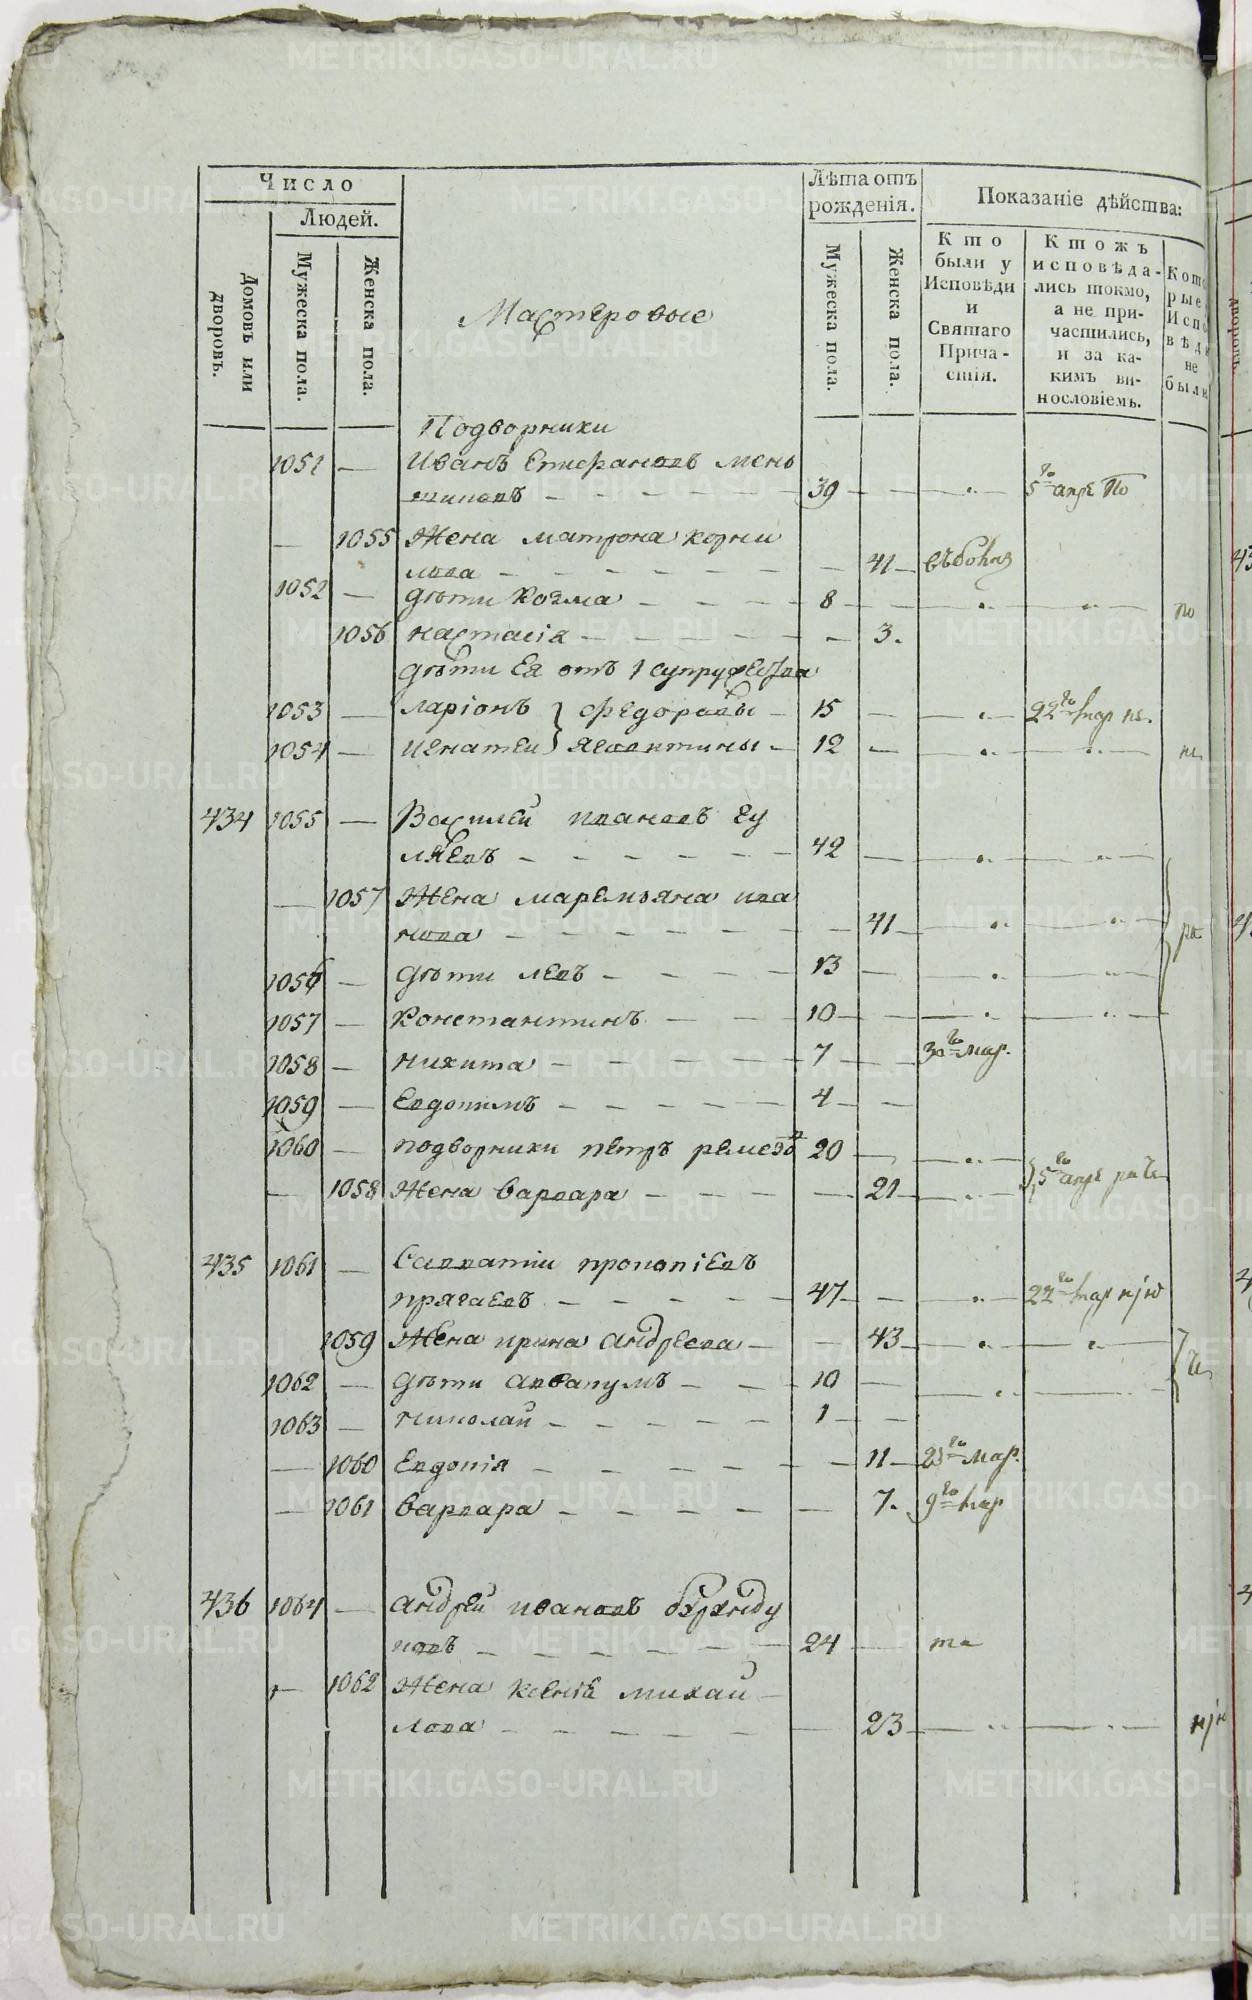 Число
Людей.
Домовъ или дворовъ.
Мужеска пола.
Женска пола.
Мастеровые
Лѣта отъ рожденія.
Мужеска пола.
Женска пола.
Показаніе дѣйства:
Кто были у Исповѣди и Святаго Причастія.
Ктожъ исповѣдались токмо, а не причастились, и за какимъ винословіемъ.
Которые Исповѣди не были
Подворники
1051 — Иванъ Епифановъ мень
шиковъ — 39 — 5го апр
— 1055 Жена матрона корни
лова — 41
1052 — дѣти Козма — 8
1056 настасія — 3.
дѣти Ея отъ 1 супружества
1053 — Ларіонъ } федоровы — 15 — 22го мар
1054 — игнатеи } — 12
434 1055 — Василей ивановъ
— 42
— 1057 Жена маремьяна ива
нова — 41
1056 — дѣти левъ — 13
1057 — Константинъ — 10
1058 — никита — 7 — 30го мар.
1059 — Евдокимъ — 4
1060 — подворники петръ ремезовъ 20
— 1058 Жена варвара — 21 — 5го апр
435 1061 — Савватіи прокопіевъ
— 47 — 22го мар
1059 Жена ирина андреева — 43
1062 — дѣти аввакумъ — 10
1063 — николай — 1
— 1060 Евдокія — 11 — 23го мар.
— 1061 варвара — 7. 9го мар
436 1064 — андрей ивановъ
ковъ — 24
— 1062 Жена ксенія михаи
лова — 23
METRIKI.GASO-URAL.RU